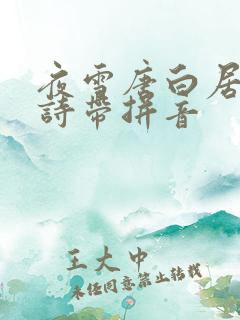 夜雪唐白居
詩帶拼音
王大中
未经同意禁止转载